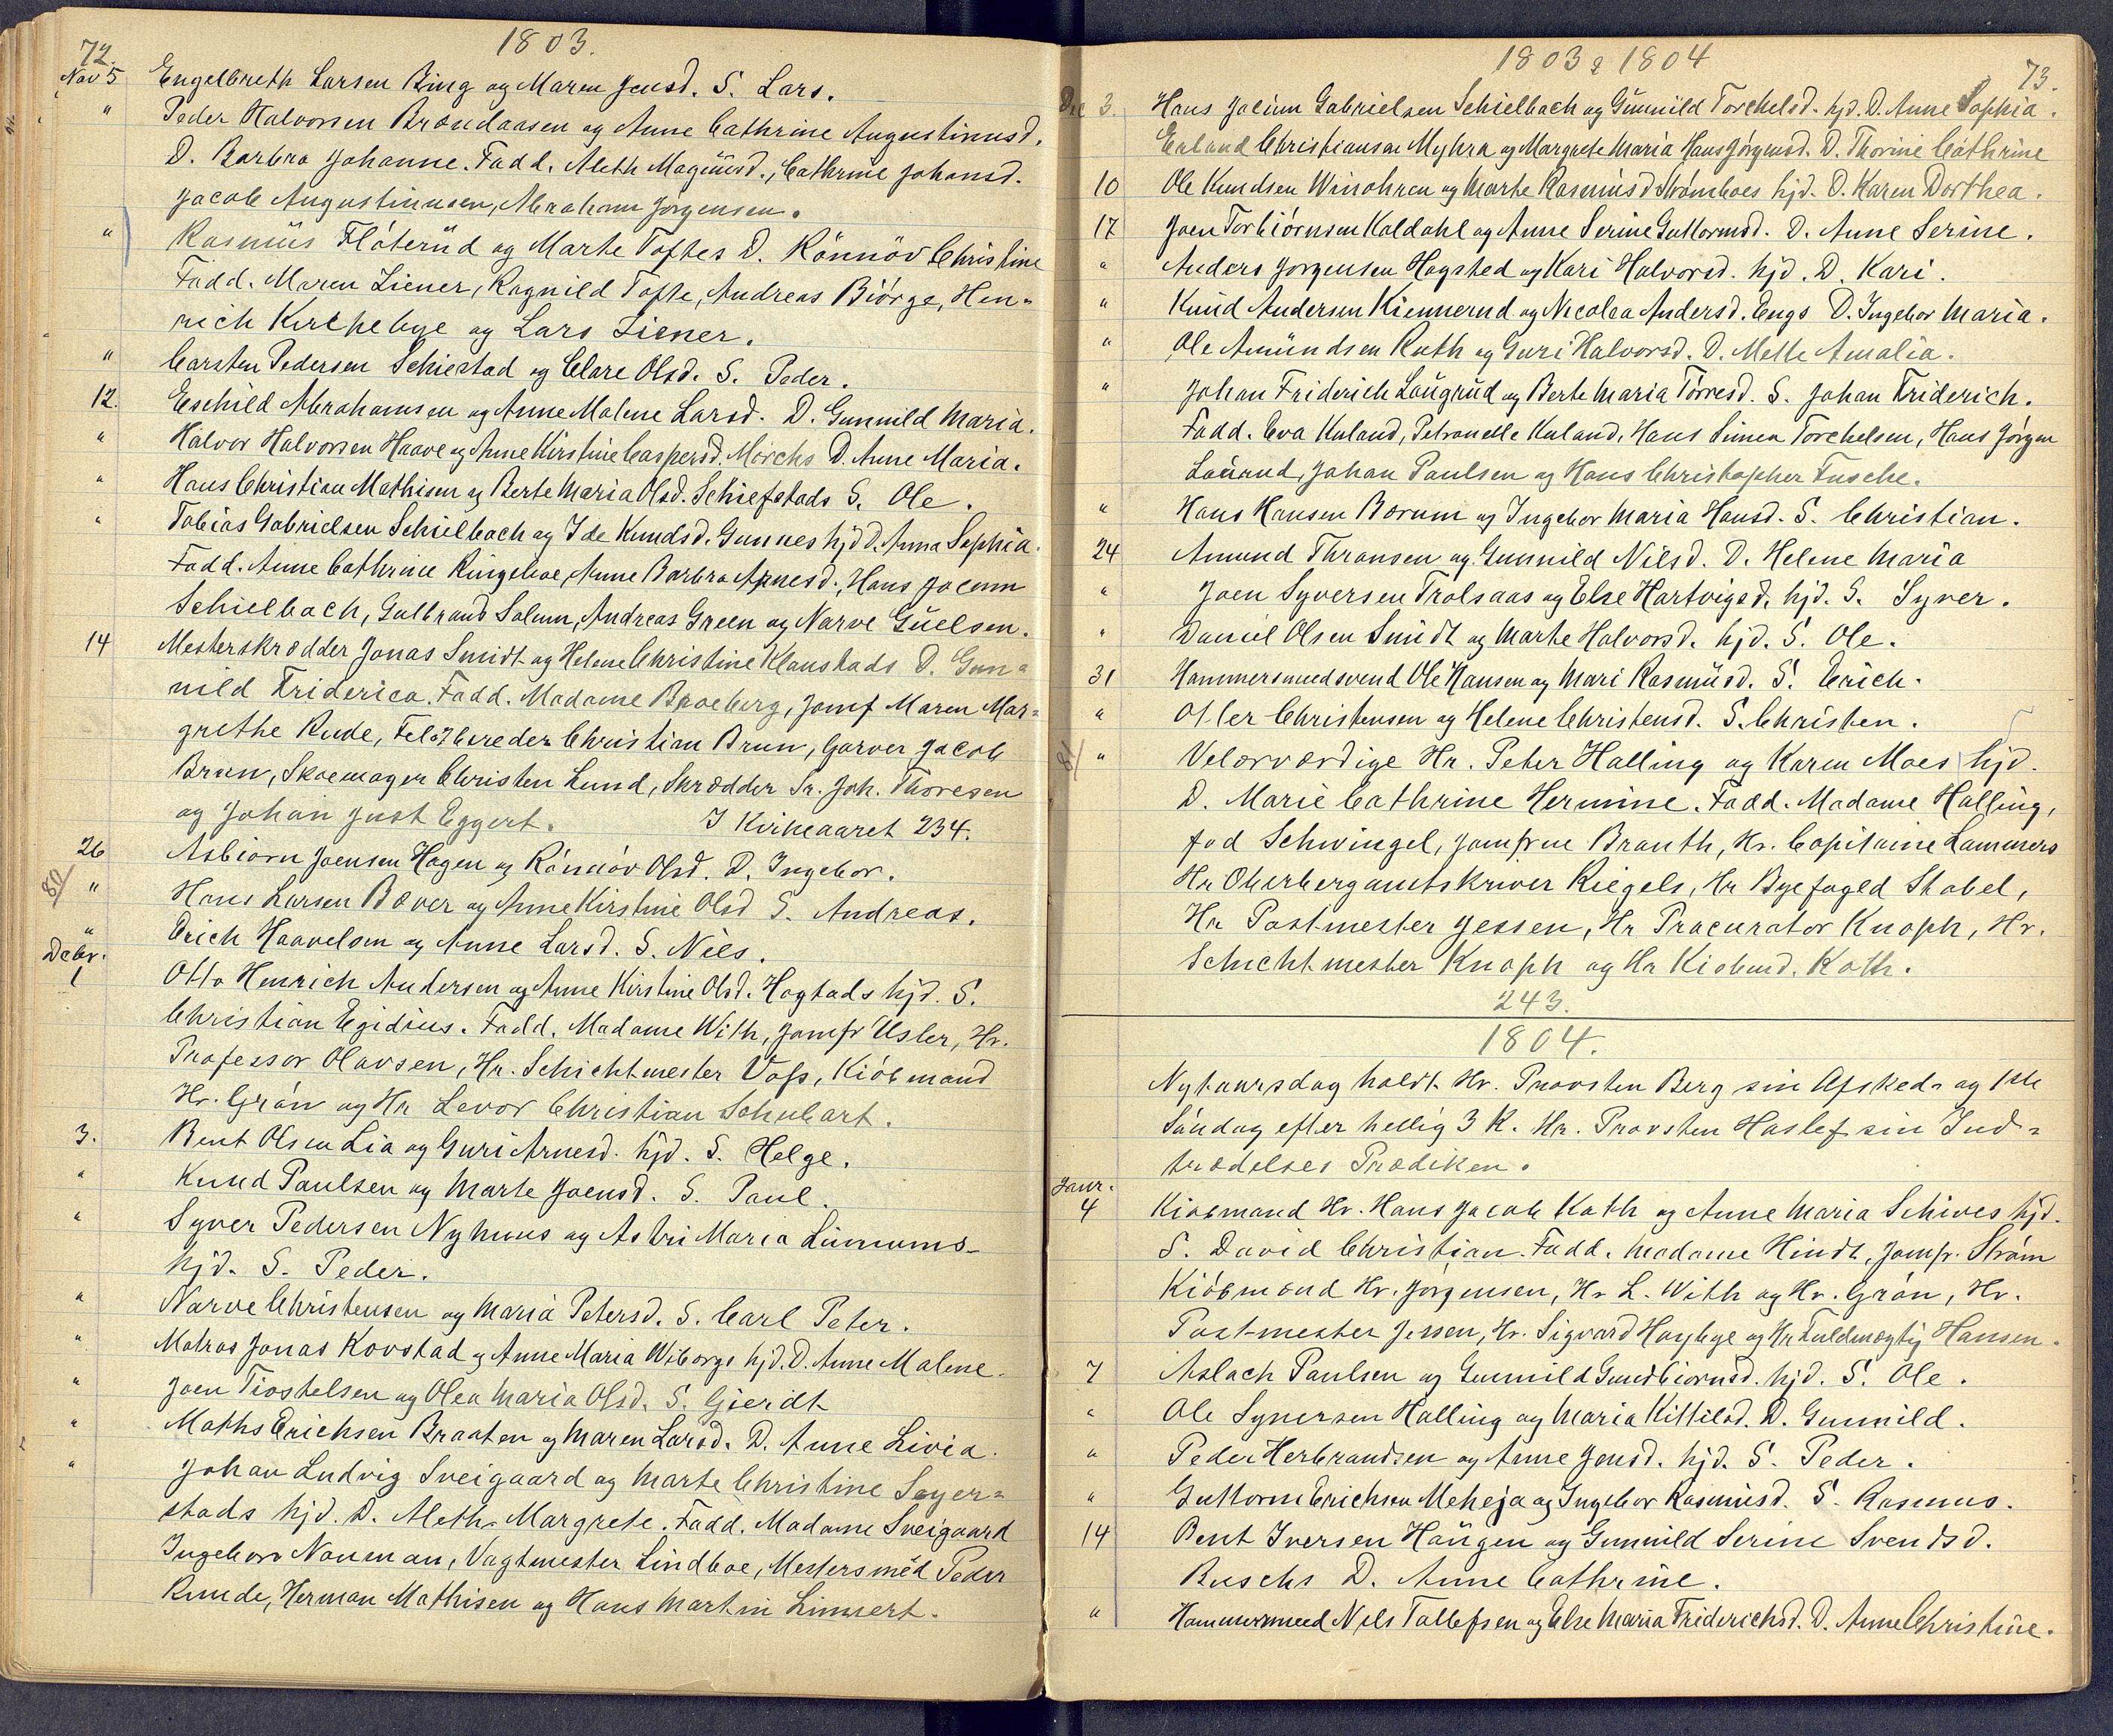 72.
1803.
Nov 5 Engelbreth Larsen Ring og Maren Jensd. S. Lars.
" Peder Halvorsen Brændaasen og Anne Cathrine Augustinusd.
D. Barbra Johanne. Fadd. Aleth Magnusd., Cathrine Johansd.
Jacob Augustinusen, Abraham Jørgensen.
" Rasmus Flóterüd og Marte Toftes D. Rönnöv Christine
Fadd. Maren Liener, Ragnild Tofte, Andreas Biórge, Hen-
rich Kirchebye og Lars Liener.
" Carsten Pedersen Schiestad og Clare Olsd. S. Peder.
12. Eschild Abrahamsen og Anne Malene Larsd. D. Gunnild Maria.
" Halvor Halvorsen Haave og Anne Kirstine Caspersd. Mörchs D. Anne Maria.
" Hans Christian Mathisen og Berte Maria Olsd. Schiefstads S. Ole.
" Tobias Gabrielsen Schielbach og Ide Knudsd. Gunnes hjd D. Anna Sophia.
Fadd. Anne Cathrine Ringeboe, Anne Barbra Arnesd., Hans Jocum
Schielbach, Gulbrand Solum, Andreas Green og Narve Guelsen.
14 Mesterskrædder Jonas Smidt og Helene Christine Klaustads D. Gun-
nild Friderica. Fadd. Madame Broeberg, Jomf Maren Mar-
grethe Rude, Feldtbereder Christian Brun, Garver Jacob
Brun, Skoemager Christen Lund, Skrædder Sr. Joh. Thoresen
og Johan Just Eggert. I Kirkeaaret 234.
26 Asbiørn Joensen Hagen og Rónnóv Olsd. D. Ingebor.
80/ " Hans Larsen Bæver og Anne Kirstine Olsd S. Andreas.
" Erich Haavelsen og Anne Larsd. S. Niels.
Decbr.
1 Otto Henrich Andersen og Anne Kirstine Olsd. Hagtads hjd. S.
Christian Egidius. Fadd. Madame With, Jomfr Usler, Hr.
Professor Olavsen, Hr. Schichtmester Voss, Kiöbmand
Hr. Grön og Hr Levor Christian Schubart.
3. Bent Olsen Lia og Guri Arnesd. hjd. S. Helge.
" Knud Paulsen og Marte Joensd. S. Paul.
" Syver Pedersen Nyhuus og Astri Maria Linnums-
hjd. S. Peder.
" Narve Christensen og Maria Petersd. S. Carl Peter.
" Matros Jonas Kovstad og Anne Maria Wiborgs hjd. D. Anne Malene.
" Joen Tiostelsen og Olea Maria Olsd. S. Gierdt
" Maths Erichsen Braaten og Maren Larsd. D. Anne Livia.
" Johan Ludvig Sveigaard og Marte Christine Sager-
stads hjd. D. Aleth Margrete. Fadd. Madame Sveigaard
Ingeborr Nauman, Vagtmester Lindboe, Mestersmed Peder
Runde, Herman Mathisen og Hans Martin Linnert.
1803 & 1804
73.
Dec 3. Hans Jocum Gabrielsen Schielbach og Gunnild Torchelsd. hjd. D. Anne Sophia.
Erland Christiansen Myhra og Margrete Maria Hans Jórgensd. D. Thorine Cathrine
10 Ole Knudsen Winohren og Marte Rasmusd Strömboes hjd. D. Karen Dorthea.
17 Joen Torbiórnsen Koldahl og Anne Serine Guttormsd. D. Anne Serine.
" Anders Jorgensen Hagsted og Kari Halvorsd. hjd. D. Kari.
" Knud Andersen Kiennerud og Nicolea Andersd. Engs D. Ingebor Maria.
" Ole Amündsen Ruth og Guri Halvorsd. D. Mette Amalia.
" Johan Friderich Laugrud og Berte Maria Tórresd. S. Johan Friderich.
Fadd. Eva Kuland, Petronelle Kuland, Hans Simen Torchelsen, Hans Jórgen
Laurud, Johan Paulsen og Hans Christopher Fusche.
" Hans Hansen Borum og Ingebor Maria Hansd. S. Christian.
24 Amund Thronsen og Gunnild Nilsd. D. Helene Maria
" Joen Syversen Trolsaas og Else Hartvigsd. hjd. S. Syver.
" Daniel Olsen Smidt og Marte Halvorsd. hjd. S. Ole.
31 Hammersmedsvend Ole Hansen og Mari Rasmusd. S. Erich.
" Otter Christensen og Helene Christensd. S. Christen.
81/ " Velærværdige Hr. Peter Halling og Karen Moes hjd.
D. Marie Cathrine Hermine. Fadd. Madame Halling,
fod Schwingel, Jomfrue Branth, Hr. Capitaine Lammers
Hr Oberbergamtskriver Riegels, Hr Byefoged Stabel,
Hr Postmester Jessen, Hr Procurator Knoph, Hr.
Schichtmester Knoph og Hr Kiobmd. Koth.
243.
1804.
Nytaarsdag holdt Hr. Provsten Berg sin Afskeds og 1ste
Sóndag efter hellig 3 K. Hr. Provsten Haslef sin Ind-
trædelses Prædiken.
Janr.
4 Kiøbmand Hr. Hans Jacob Koth og Anne Maria Schives hjd.
S. David Christian. Fadd. Madame Hindt, Jomfr. Stróm
Kiöbmand Hr. Jórgensen, Hr L. With og Hr. Grón, Hr.
Postmester Jessen, Hr. Sigvard Høybye og Hr Fuldmægtig Hansen.
7 Aslach Paulsen og Gunnild Gundbiornsd. hjd. S. Ole.
" Ole Syversen Halling og Maria Kittilsd. D. Gunnild.
" Peder Herbrandsen og Anne Jensd. hjd. S. Peder.
" Guttorm Erichsen Meheja og Ingebor Rasmusd. S. Rasmus.
14 Bent Iversen Haugen og Gunnild Serine Svendsd.
Buschs D. Anne Cathrine.
" Hammersmed Nils Tollefsen og Else Maria Friderichsd. D. Anne Christine.